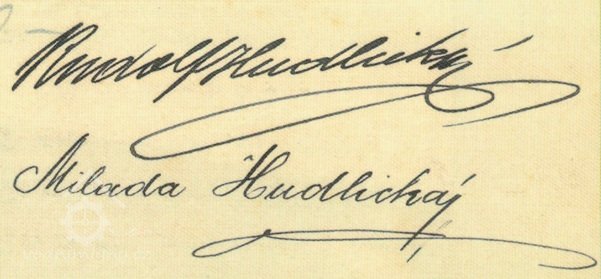 Rudolf Hudlický
Milada Hudlická